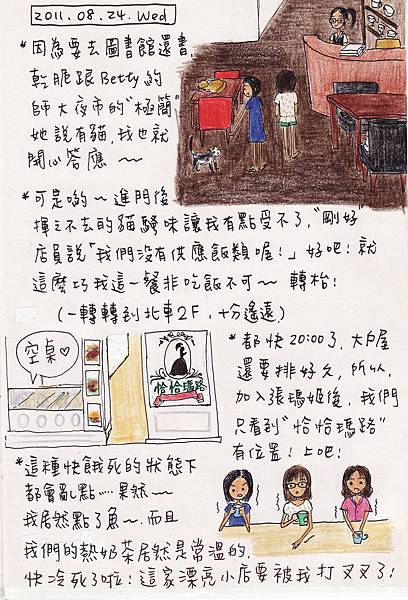 2011.08.24.Wed
*因為要去圖書館還書
乾脆跟Betty約
師大夜市的"極簡"
她說有貓,我也就
開心答應~~
*可是喲~進門後
揮之不去的貓騷味讓我有點受不了,"剛好"
店員說「我們沒有供應飯類喔!」好吧!就
這麼巧我這一餐非吃飯不可~~轉枱!
(一轉轉到北車2F,十分遙遠)
空桌♡
恰恰瑪路
*都快20:00了,大戶屋
還要排好久,所以,
加入張瑪姬後,我們
只看到"恰恰瑪路"
有位置!上吧!
*這種快餓死的狀態下
都會亂點……果然~~
我居然點了魚~~而且
我們的熱奶茶居然是常溫的,
快冷死了啦!這家漂亮小店要被我打叉叉了!